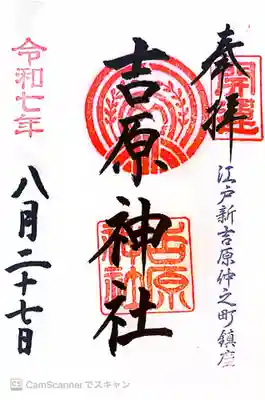 奉拝
開運
江戸新吉原仲之町鎮座
吉原神社
吉原神社
令和七年
八月二十七日
CS CamScanner でスキャン